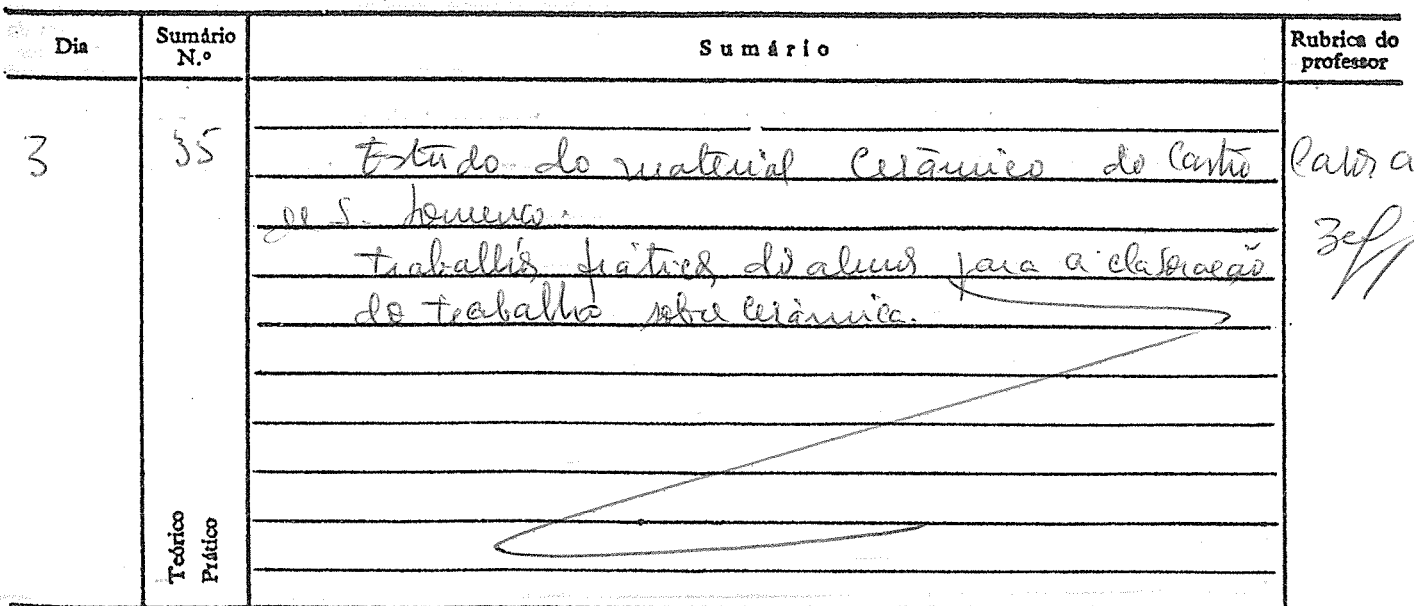 Dia Sumário N.º Sumário Rubrica do professor
3 35 Estudo do material Cerâmico do Castro
de S. Lourenço.
Trabalhos práticos dos alunos para a elaboração
do trabalho sobre Cerâmica.
Teórico
Prático